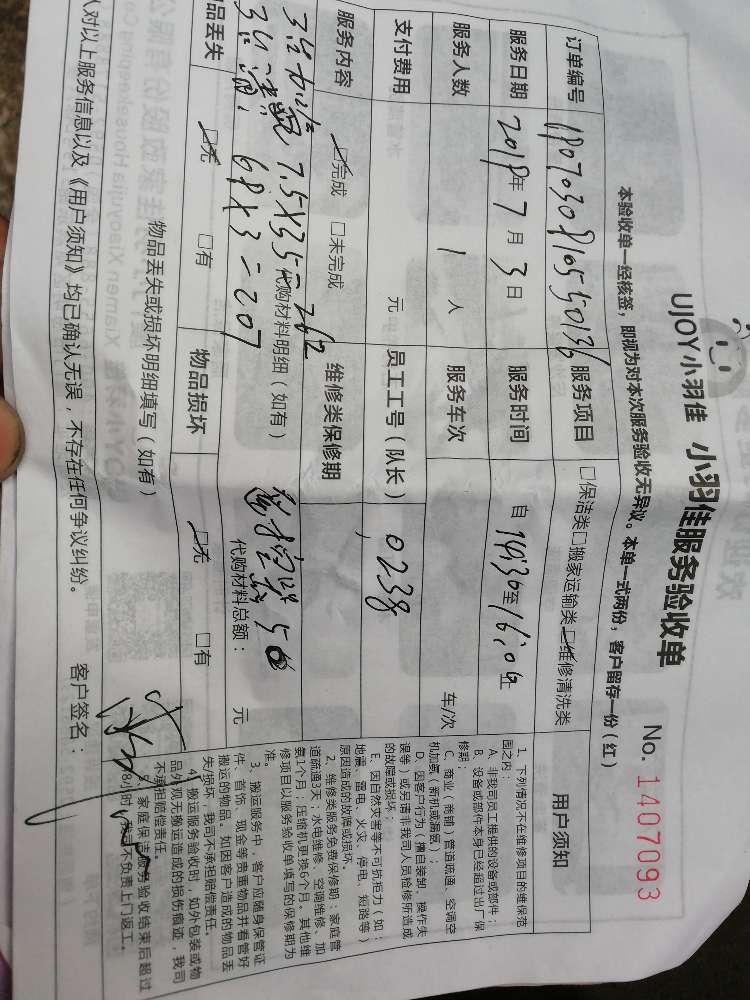 UJOY小羽佳 小羽佳服务验收单
No. 1407093
本验收单一经核签，即视为对本次服务验收无异议。本单一式两份，客户留存一份（红）
订单编号 服务项目 □保洁类□搬家运输类☑维修清洗类
服务日期 2018年7月3日 服务时间 自14:30至16:00止
服务人数 1人 服务车次 车/次
支付费用 元 员工工号（队长） 0238
服务内容 ☑完成 □未完成 维修类保修期
7.5×35=262 代购材料明细（如有）
68×3=207 50
代购材料总额： 元
物品丢失 ☑无 □有 物品损坏 ☑无 □有
物品丢失或损坏明细填写（如有）
人对以上服务信息以及《用户须知》均已确认无误，不存在任何争议纠纷。 客户签名：
用户须知
1、下列情况不在维修项目的维保范
围之内：
A、非我司员工提供的设备或部件；
B、设备或部件本身已经超过出厂保
修期；
C、商业（商铺）管道疏通、空调空
机加氟（新机或漏氟）；
D、因客户行为（擅自装卸、操作失
误等）或另请非我司人员检修所造成
的故障或损坏；
E、因自然灾害等不可抗拒力（如：
地震、雷电、火灾、停电、短路等）
原因造成的故障或损坏。
2、维修类服务免费保修期：家庭管
道疏通3天；水电维修、空调维修、加
氟1个月；压缩机更换6个月。其他维
修项目以服务验收单填写的保修期为
准。
3、搬运服务中，客户应随身保管证
件、首饰、现金等贵重物品并看管好
搬运的物品，如因客户造成的物品丢
失损坏，我司不承担赔偿责任。
4、搬运服务验收时，如外包装或物
品外观无搬运造成的损伤痕迹，我司
不承担赔偿责任。
5、家庭保洁服务验收结束后超过
48小时，我司不负责上门返工。